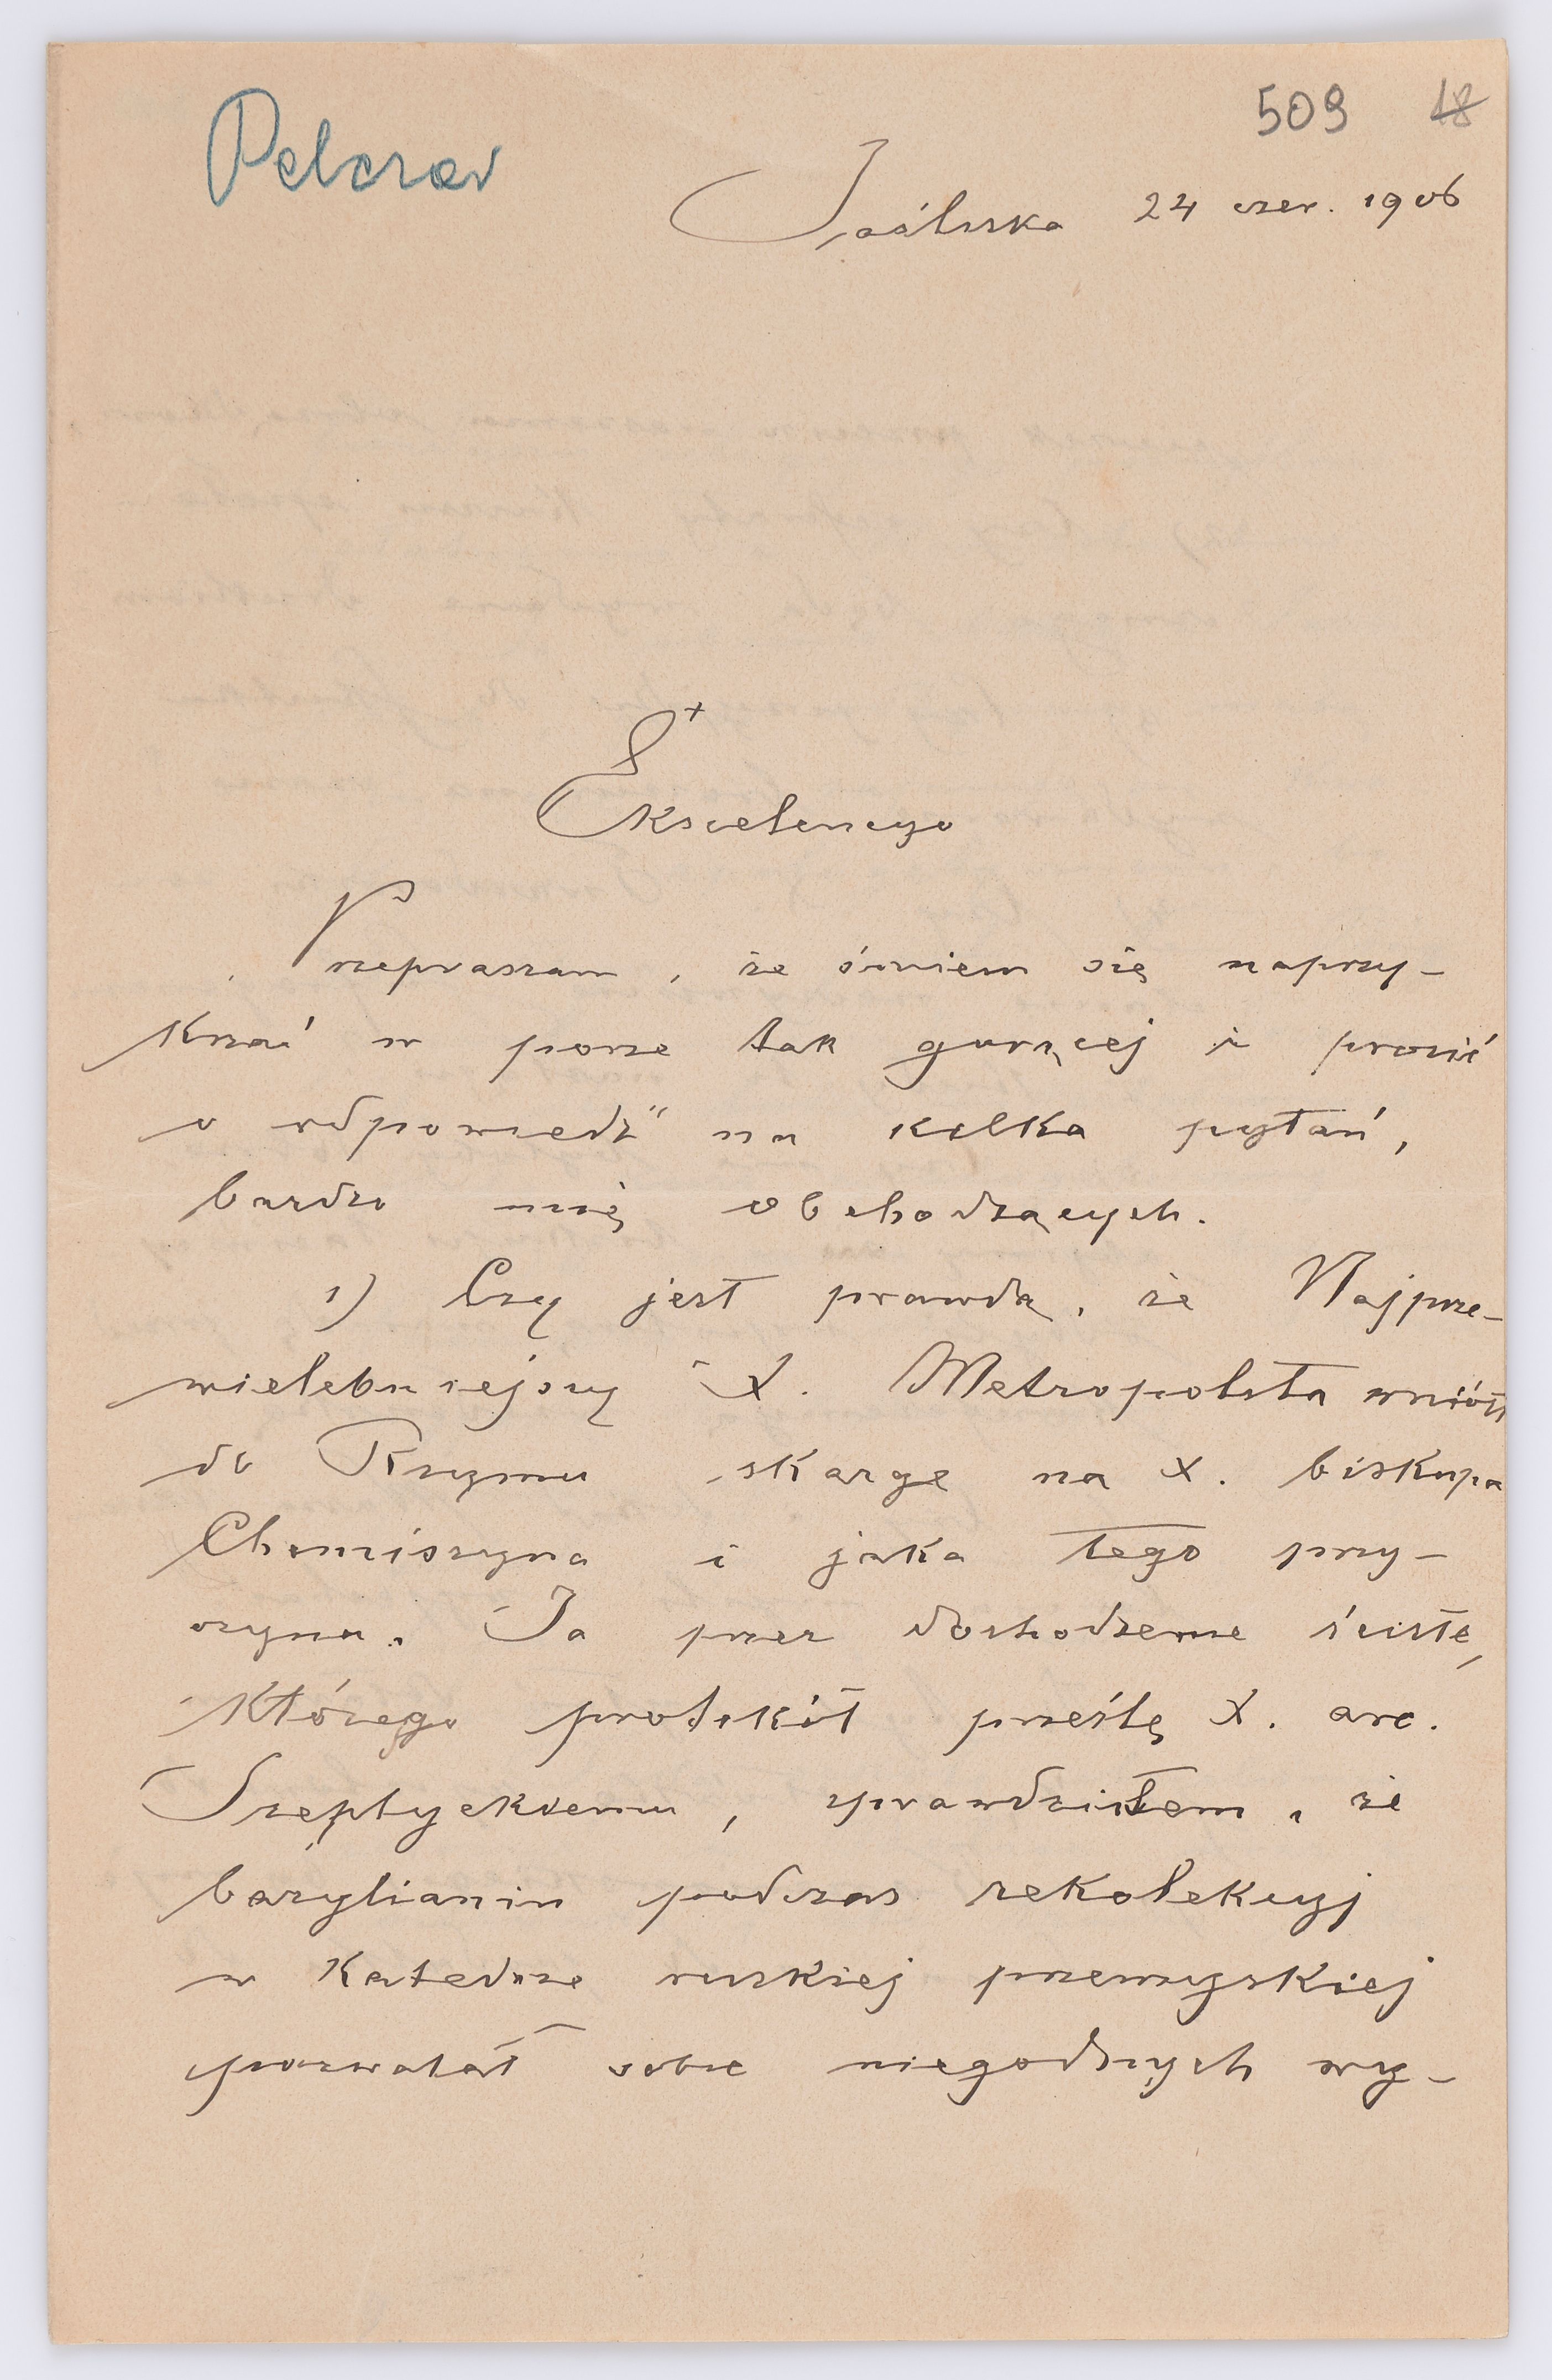 Pelczar
509 18
Jaśliska 24 czer. 1906
+
Ekscelencyo
Przepraszam, że śmiem się naprzy-
krzać w porze tak gorącej i prosić
o odpowiedź na kilka pytań,
bardzo mię obchodzących.
1) Czy jest prawdą, że Najprze-
wielebniejszy X. Metropolita wniósł
do Rzymu skargę na X. biskupa
Chomiszyna i jaka tego przy-
czyna. Ja przez dochodzenie ścisłe,
którego protokół prześlę X. arc.
Szeptyckiemu, sprawdziłem, że
bazylianin podczas rekolekcyj
w katedrze ruskiej przemyskiej
pozwalał sobie niegodnych wy-